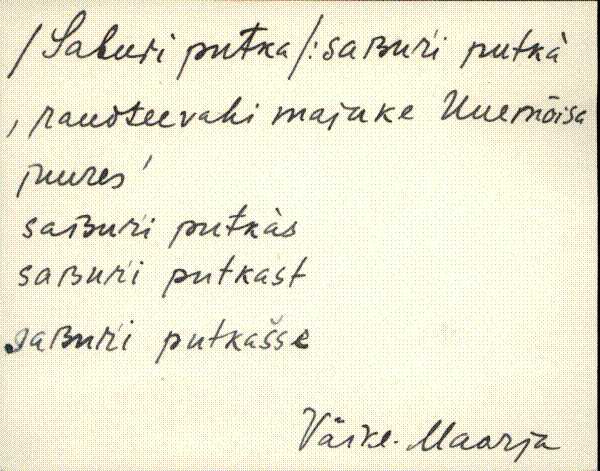 /Saburi putka/: saʙuri putkà
, raudteevahi majake Uuemõisa
juures'
saʙuri putkàs
saʙuri putkast
saʙuri putkašse
Väike-Maarja